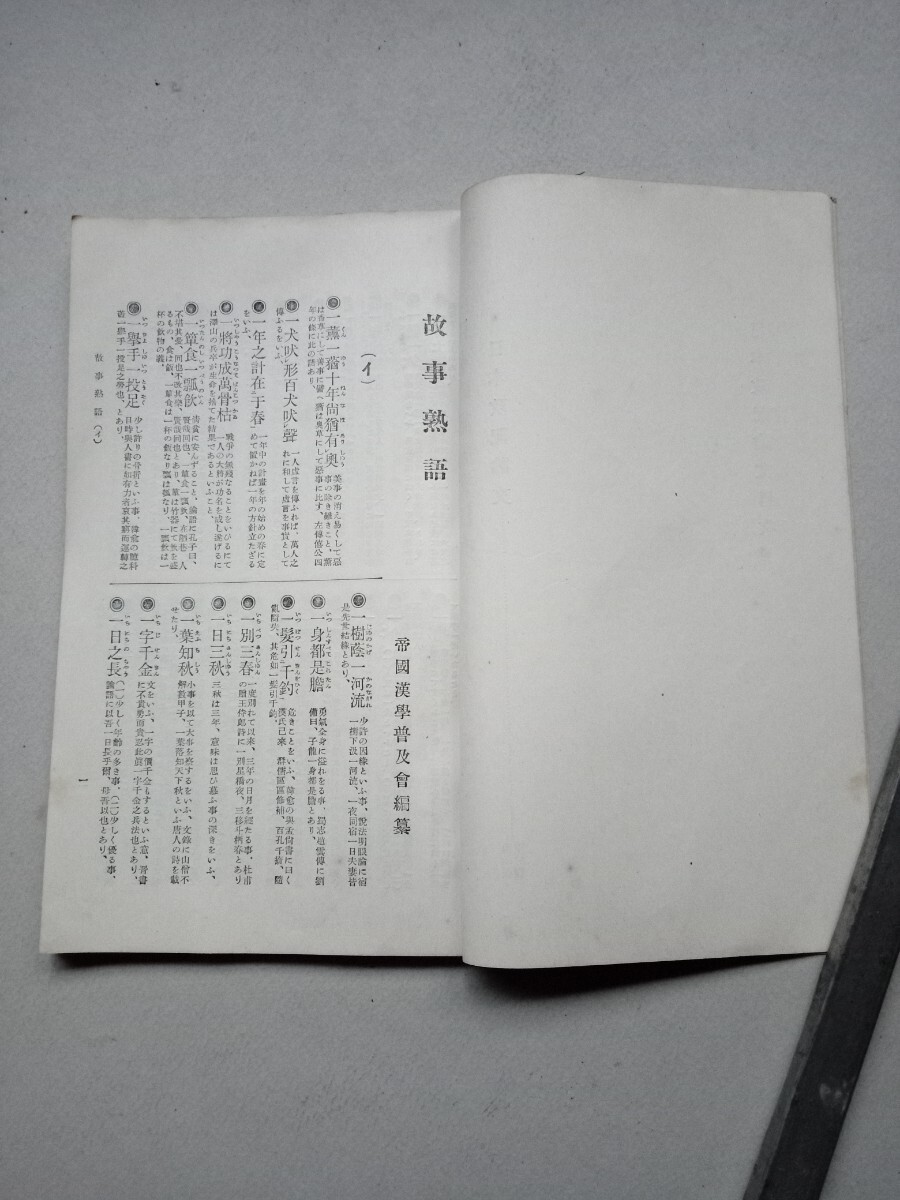 故事熟語
帝國漢學普及會編纂
(イ)
一薰一蕕十年尙猶有臭
美事の消え易くして惡
事の除き難きこと、薰
は香草にして善事に譬へ蕕は臭草にして惡事に比す、左傳僖公四
年の條に此の語あり、
一犬吠形百犬吠聲
一人虛言を傳ふれば、萬人之
れに和して虛言を事實として
傳ふるをいふ、
一年之計在于春
一年中の計畫を年の始めの春に定
めて置かねば一年の方針立たざる
をいふ、
一將功成萬骨枯
戰爭の無殘なることをいひるにて
一人の大將が功名を成し遂げるに
は澤山の兵卒が生命を捨てた結果であるといふこと、
一簞食一瓢飮
淸貧に安んずること、論語に孔子曰、
賢哉回也、一簞食一瓢飮、在陋巷、人
不堪其憂、回也不改其樂、賢哉回也とあり、簞は竹器にて飯を盛
るもの、食は飯、一簞食は一杯の飯なり瓢は瓠なり、一瓢飮は一
杯の飮物の義、
一擧手一投足
少し許りの骨折といふ事、韓愈の應科
目時與人書に如有力者哀其窮而運轉之
蓋一擧手一投足之勞也、とあり、
一樹蔭一河流
少許の因緣といふ事、說法明眼論に宿
一樹下汲一河流、一夜同宿一日夫妻皆
是先世結緣とあり、
一身都是膽
勇氣全身に溢れをる事、蜀志趙雲傳に劉
備曰、子龍一身都是膽とあり、
一髮引千鈞
危きことをいふ、韓愈の與孟尙書に曰く
漢氏已來、群儒區區修補、百孔千瘡、隨
亂隨失、其危如一髮引千鈞、
一別三春
一度別れて以來、三年の日月を經たる事、杜甫
の贈王侍郞詩に一別星橋夜、三移斗柄春とあり
一日三秋
三秋は三年、意味は思ひ慕ふ事の深きをいふ、
一葉知秋
小事を以て大事を察するをいふ、文錄に山僧不
解數甲子、一葉落知天下秋といふ唐人の詩を載
せたり、
一字千金
文をいふ、一字の價千金もするといふ意、晉書
に不貴勇而貴忍此個一字千金之兵法也とあり、
一日之長
(一)少しく年齡の多き事、(二)少しく優る事、
論語に以吾一日長乎爾、毋吾以也とあり、
故事熟語(イ)
一